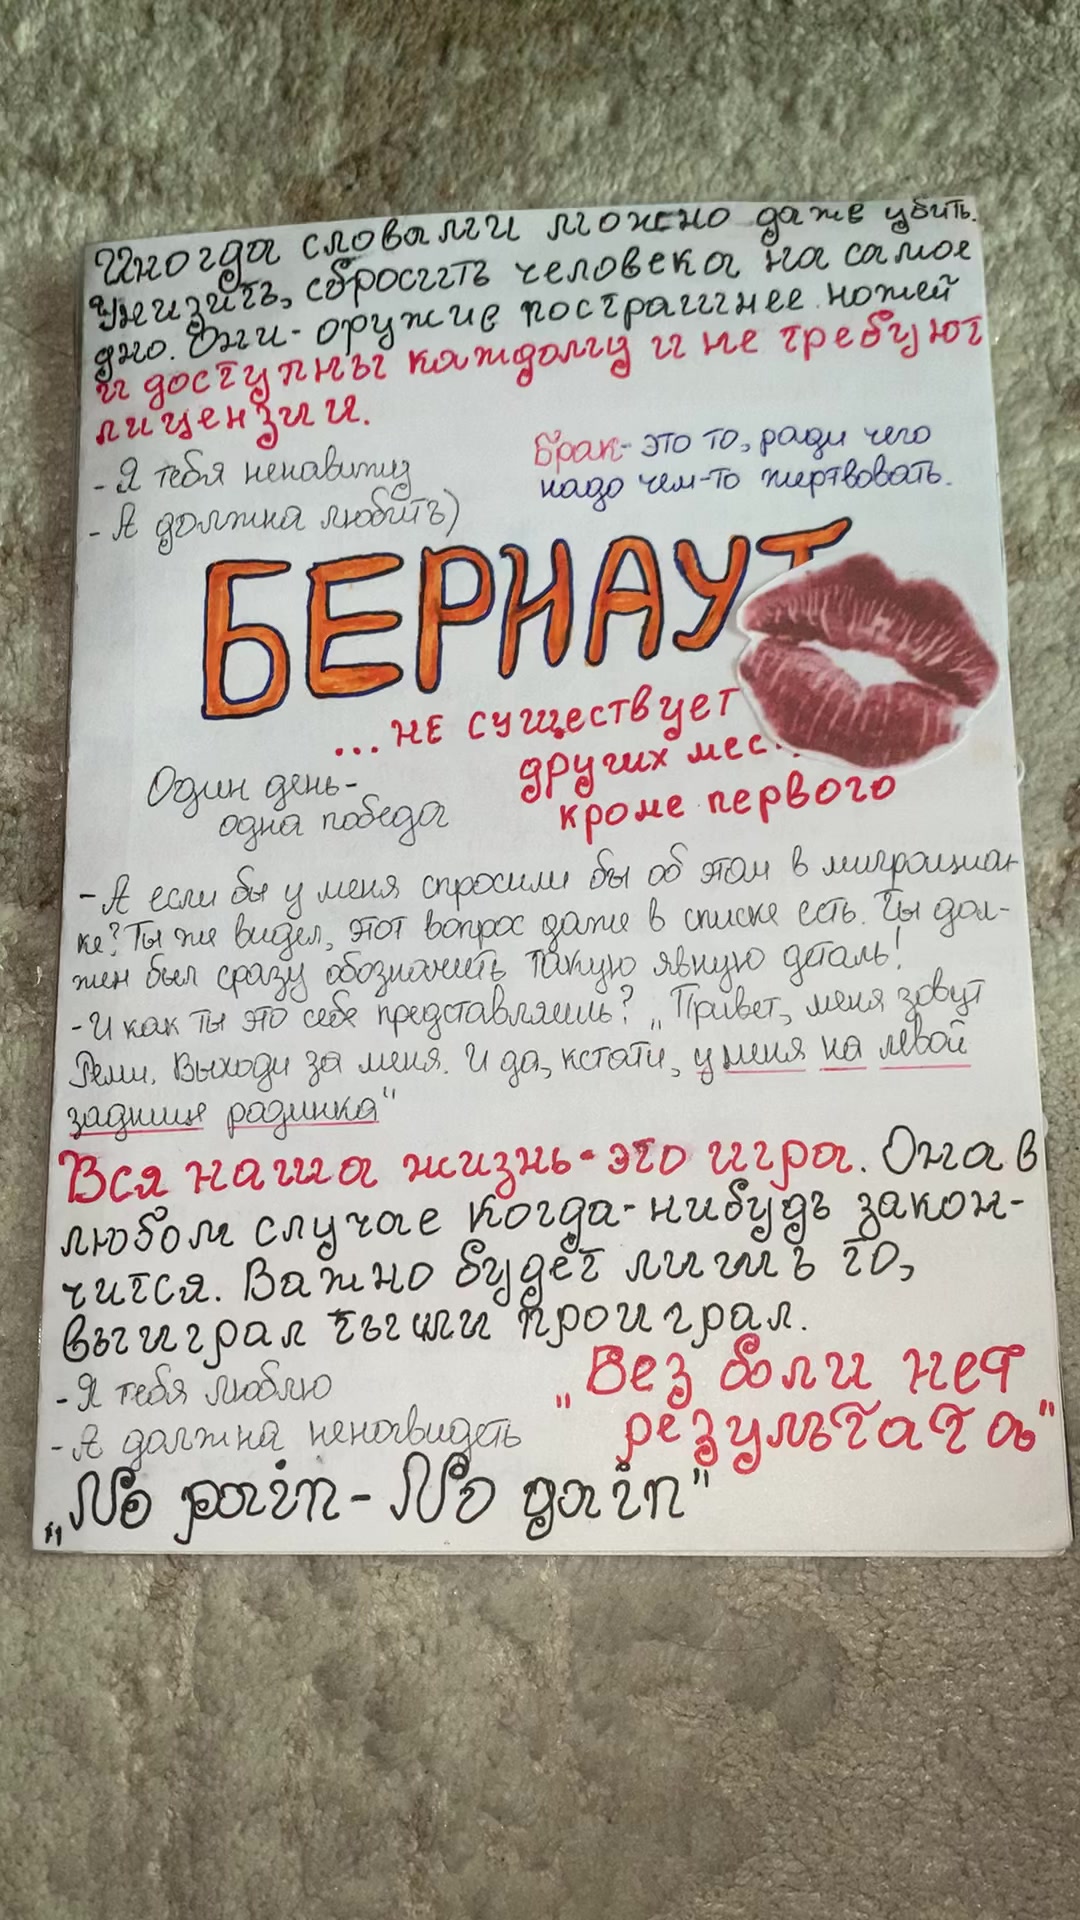 Иногда словами можно даже убить.
Унизить, сбросить человека на самое
дно. Они - оружие пострашнее ножей
и доступны каждому и не требуют
лицензии.
- Я тебя ненавижу
- А должна любить)
Брак - это то, ради чего
надо чем-то жертвовать.
БЕРНАУТ
...не существует
других мес
кроме первого
Один день-
одна победа
- А если бы у меня спросили бы об этом в миграциан
ке? Ты же видел, этот вопрос даже в списке есть. Ты дол-
жен был сразу обозначить такую явную деталь!
- И как ты это себе представляешь? „Привет, меня зовут
Реми. Выходи за меня. И да, кстати, у меня на левой
заднице радинка"
Вся наша жизнь - это игра. Она в
любом случае когда-нибудь закон-
чится. Важно будет лишь то,
выиграл ты или проиграл.
- Я тебя люблю
- А должна ненавидеть
„Без боли нет
результата"
„No pain - No gain"